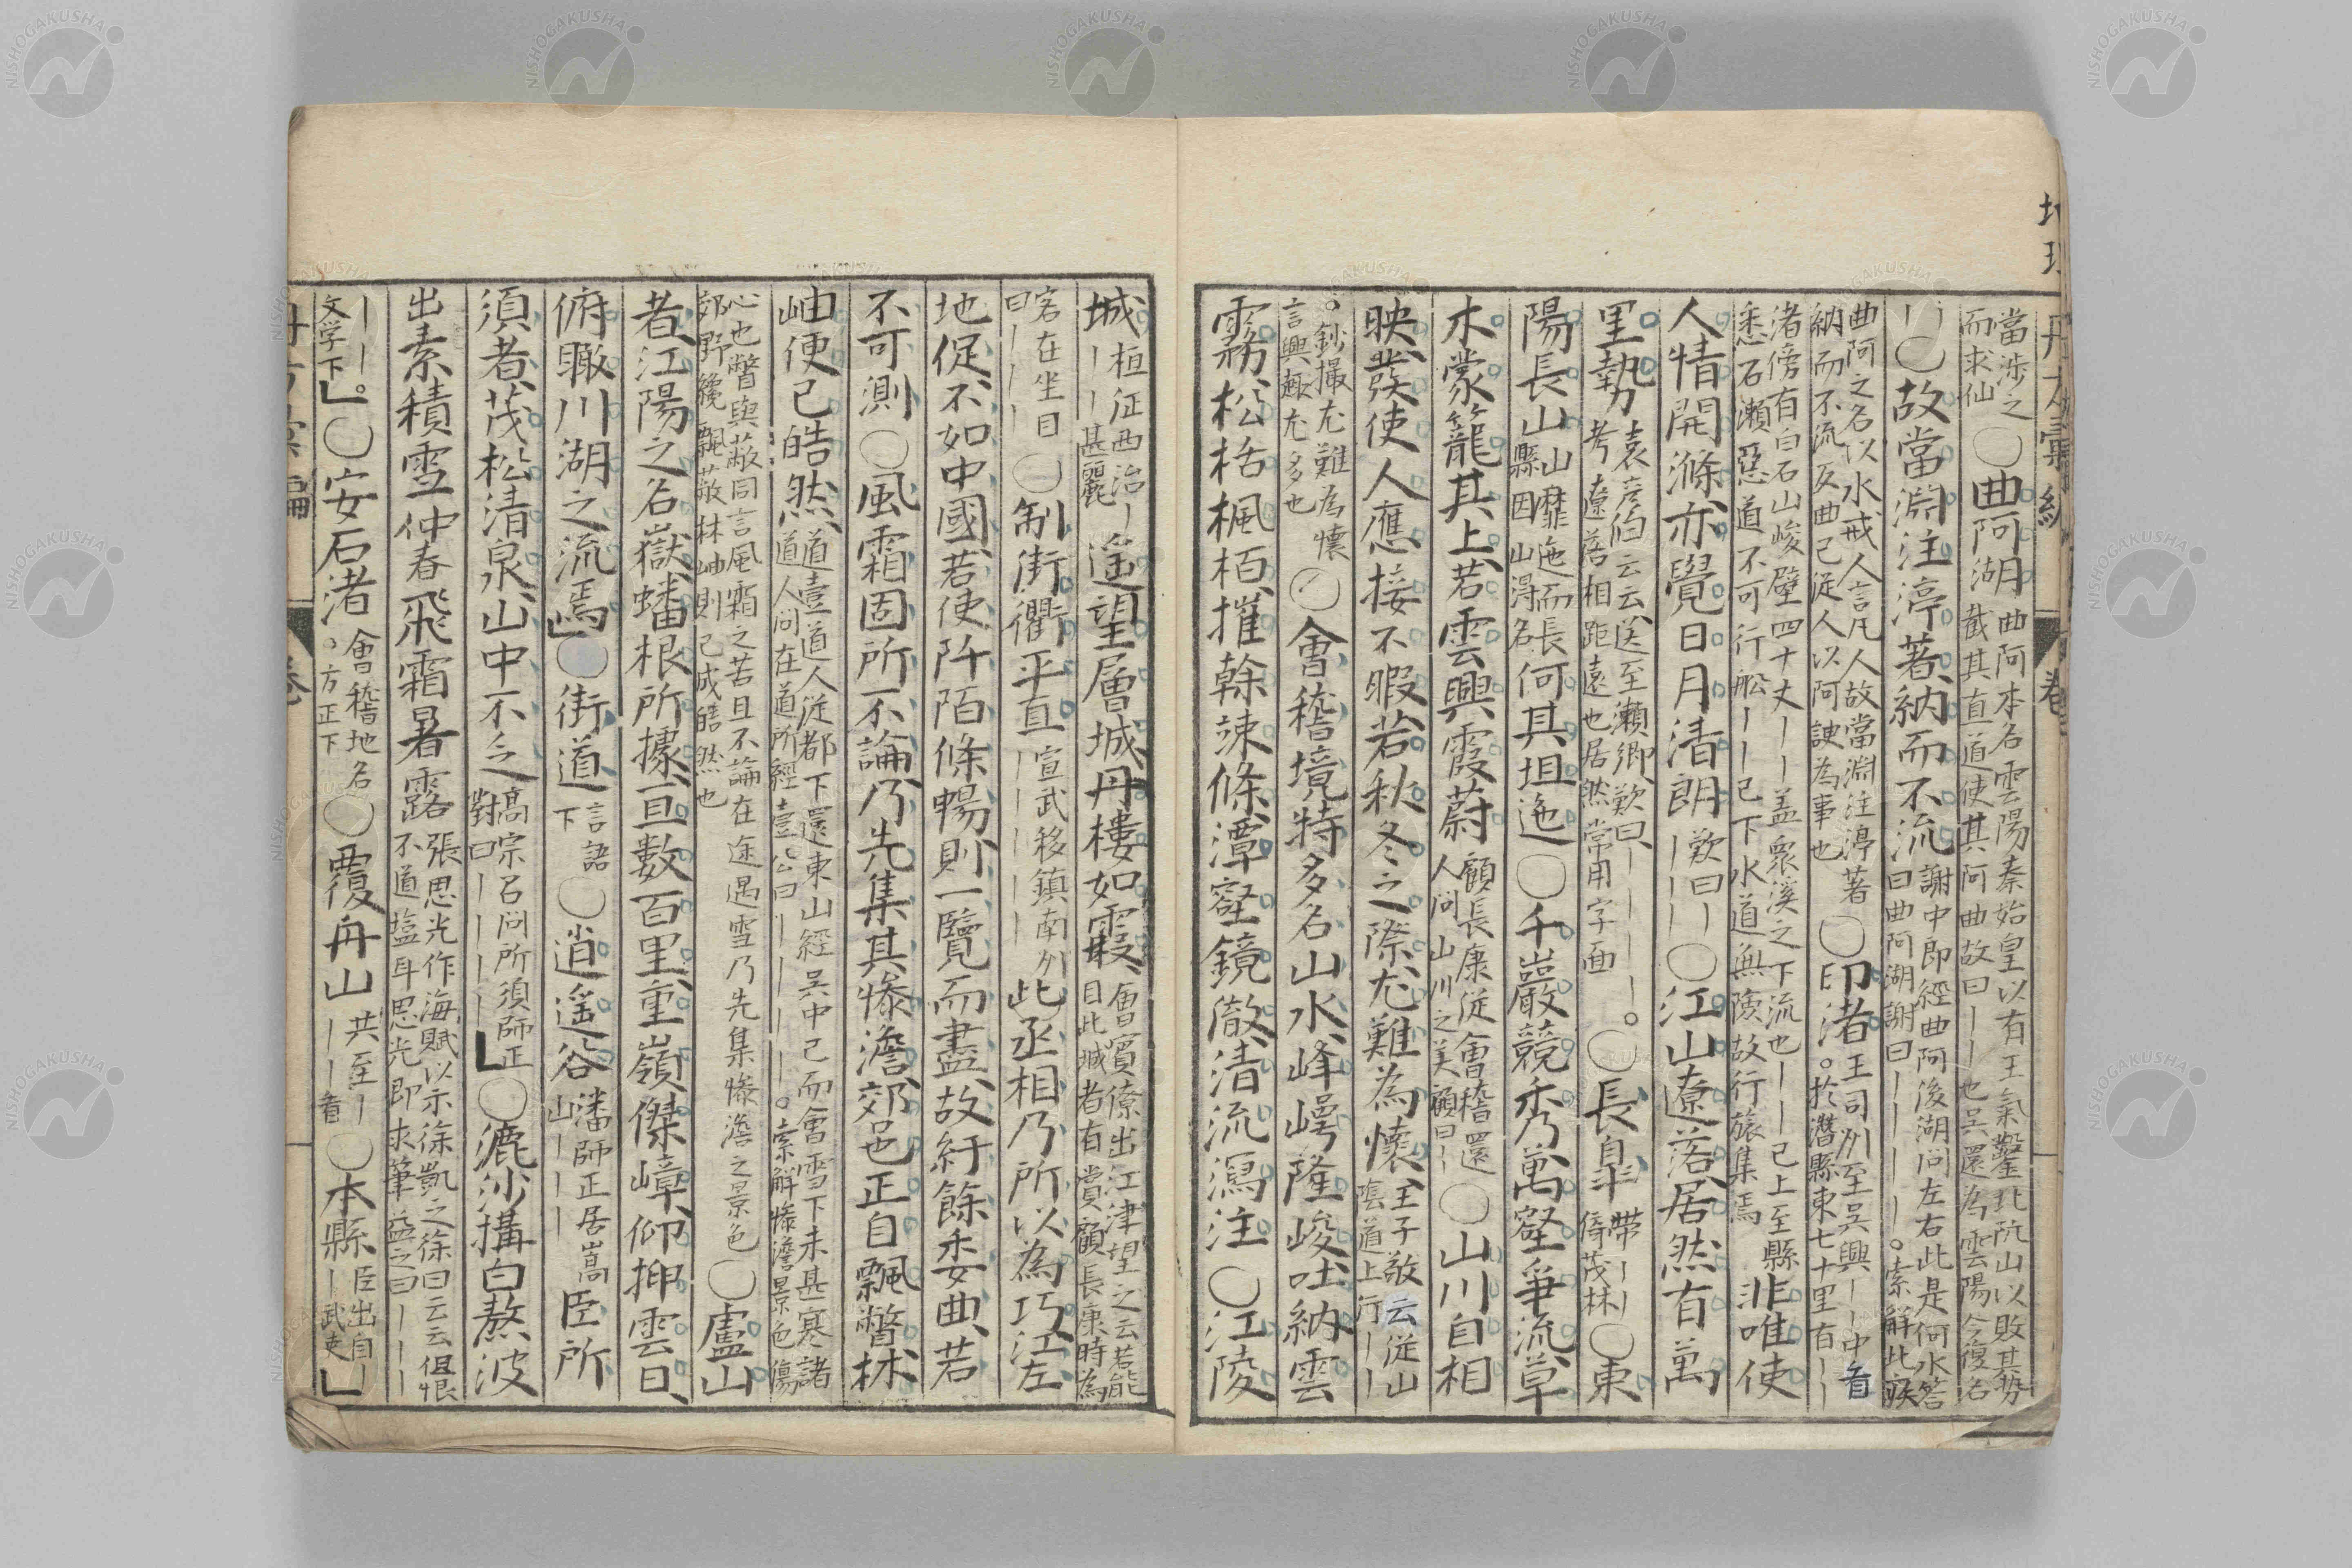 當涉之
而求仙
〇曲阿湖
曲阿本名雲陽秦始皇以有王氣鑿北阬山以敗其勢
截其直道使其阿曲故曰——也吳還為雲陽今復名
—〇故當淵注渟著納而不流
謝中郎經曲阿後湖问左右此是何水答
曰曲阿湖謝曰————。索解此族
曲阿之名以水戒人言凡人故當淵注渟著
納而不流反曲己從人以阿諛為事也
〇印渚
王司州至吳興——中看
。於潛縣東七十里有——
渚傍有白石山峻壁四十丈——盖衆溪之下流也——已上至縣
悉石瀬惡道不可行舩——已下水道無険故行旅集焉
非唯使
人情開滌亦覺日月清朗
歎曰—
———
〇江山遼落居然有萬
里勢
袁彦伯云云送至瀬郷歎曰————。
考遼落相距遠也居然常用字面
〇長阜
帯——
傍茂林
〇東
陽長山
山靡迤而長
縣因山得名
何其坦迤〇千巖競秀萬壑爭流草
木蒙籠其上若雲興霞蔚
顧長康従會稽還
人问山川之美顧曰—
〇山川自相
映發使人應接不暇若秋冬之際尤難為懷
王子敬云従山
陰道上行——
。鈔撮尤難為懷
言興趣尤多也
〇會稽境特多名山水峰崿隆峻吐納雲
霧松栝楓栢擢幹竦條潭壑鏡澈清流瀉注〇江陵
城
桓征西治—
——甚麗
遥望層城丹樓如霞
會賓僚出江津望之云若能
目此城者有賞顧長康時為
客在坐目
曰———
〇制街衢平直
宣武移鎮南州
—————
此丞相乃所以為巧江左
地促不如中國若使阡陌條暢則一覽而盡故紆餘委曲若
不可測〇風霜固所不論乃先集其慘澹郊邑正自飄瞥林
岫便已皓然
道壹道人従都下還東山經吳中已而會雪下未甚寒諸
道人问在道所經壹公曰————。索解慘澹景色傷
心也瞥與蔽同言風霜之苦且不論在途遇雪乃先集慘澹之景色
郊野纔飄蔽林岫則已成皓然也
〇盧山
者江陽之名嶽蟠根所據亘數百里重嶺傑嶂仰抻雲日
俯瞰川湖之流焉」〇街道
言語
下
〇逍遥谷
潘師正居嵩
山———
臣所
須者茂松清泉山中不乏
高宗召问所須師正
對曰————」
〇漉沙搆白熬波
出素積雪仲春飛霜暑露
張思光作海賦以示徐凱之徐曰云云但恨
不道塩耳思光即求筆益之曰———
——。
文学下」
〇安石渚
會稽地名
。方正下
〇覆舟山
共至—
——看
〇本縣
臣出自—
—武吏」